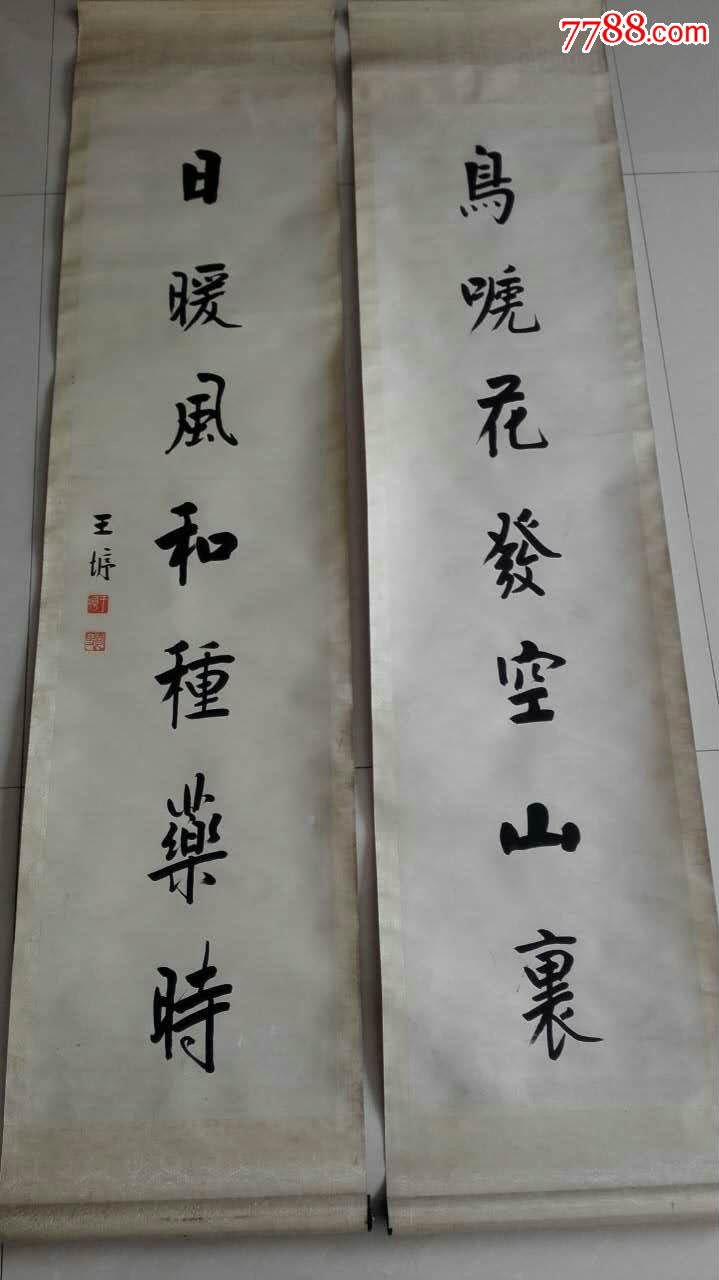 7788.com
鳥嗁花發空山裏
日暖風和種藥時
王垿